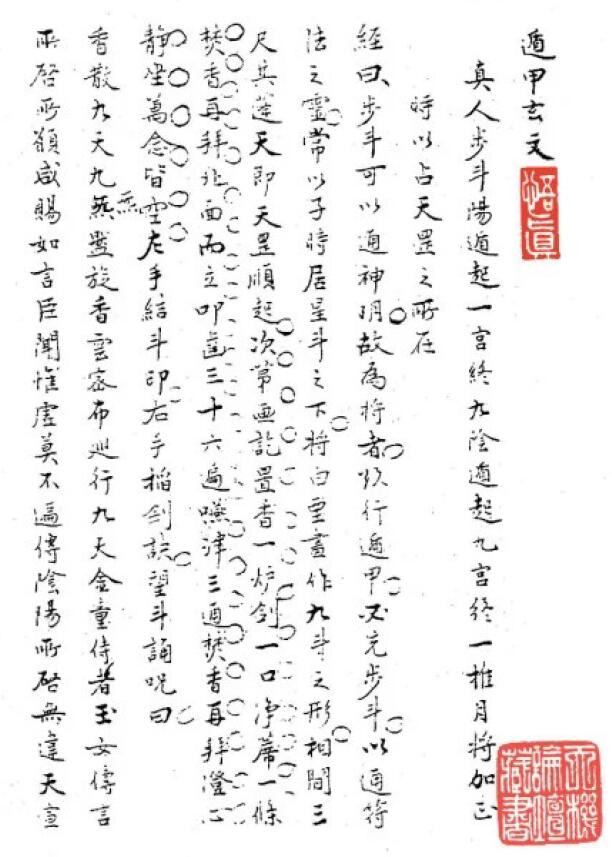 遁甲玄文
悟真
真人步斗陽遁起一宫終九陰遁起九宫終一推月將加正
時以占天罡之所在
經曰步斗可以通神明故為將者欲行遁甲必先步斗以通符
法之靈常以子時居星斗之下將白堊畫作九斗之形相間三
尺其蓬天即天罡順起次第画訖置香一炉剑一口净蓆一條
焚香再拜北面而立叩齒三十六遍嚥津三通焚香再拜澄心
静坐萬念皆空左手結斗印右手掐剑訣望斗誦呪曰
香散九天九炁盤旋香雲密布巡行九天金童侍者玉女傳言
炁
所啓所願咸賜如言臣聞惟虚莫不遍傳陰陽所啓無違天宣
天機論壇藏書